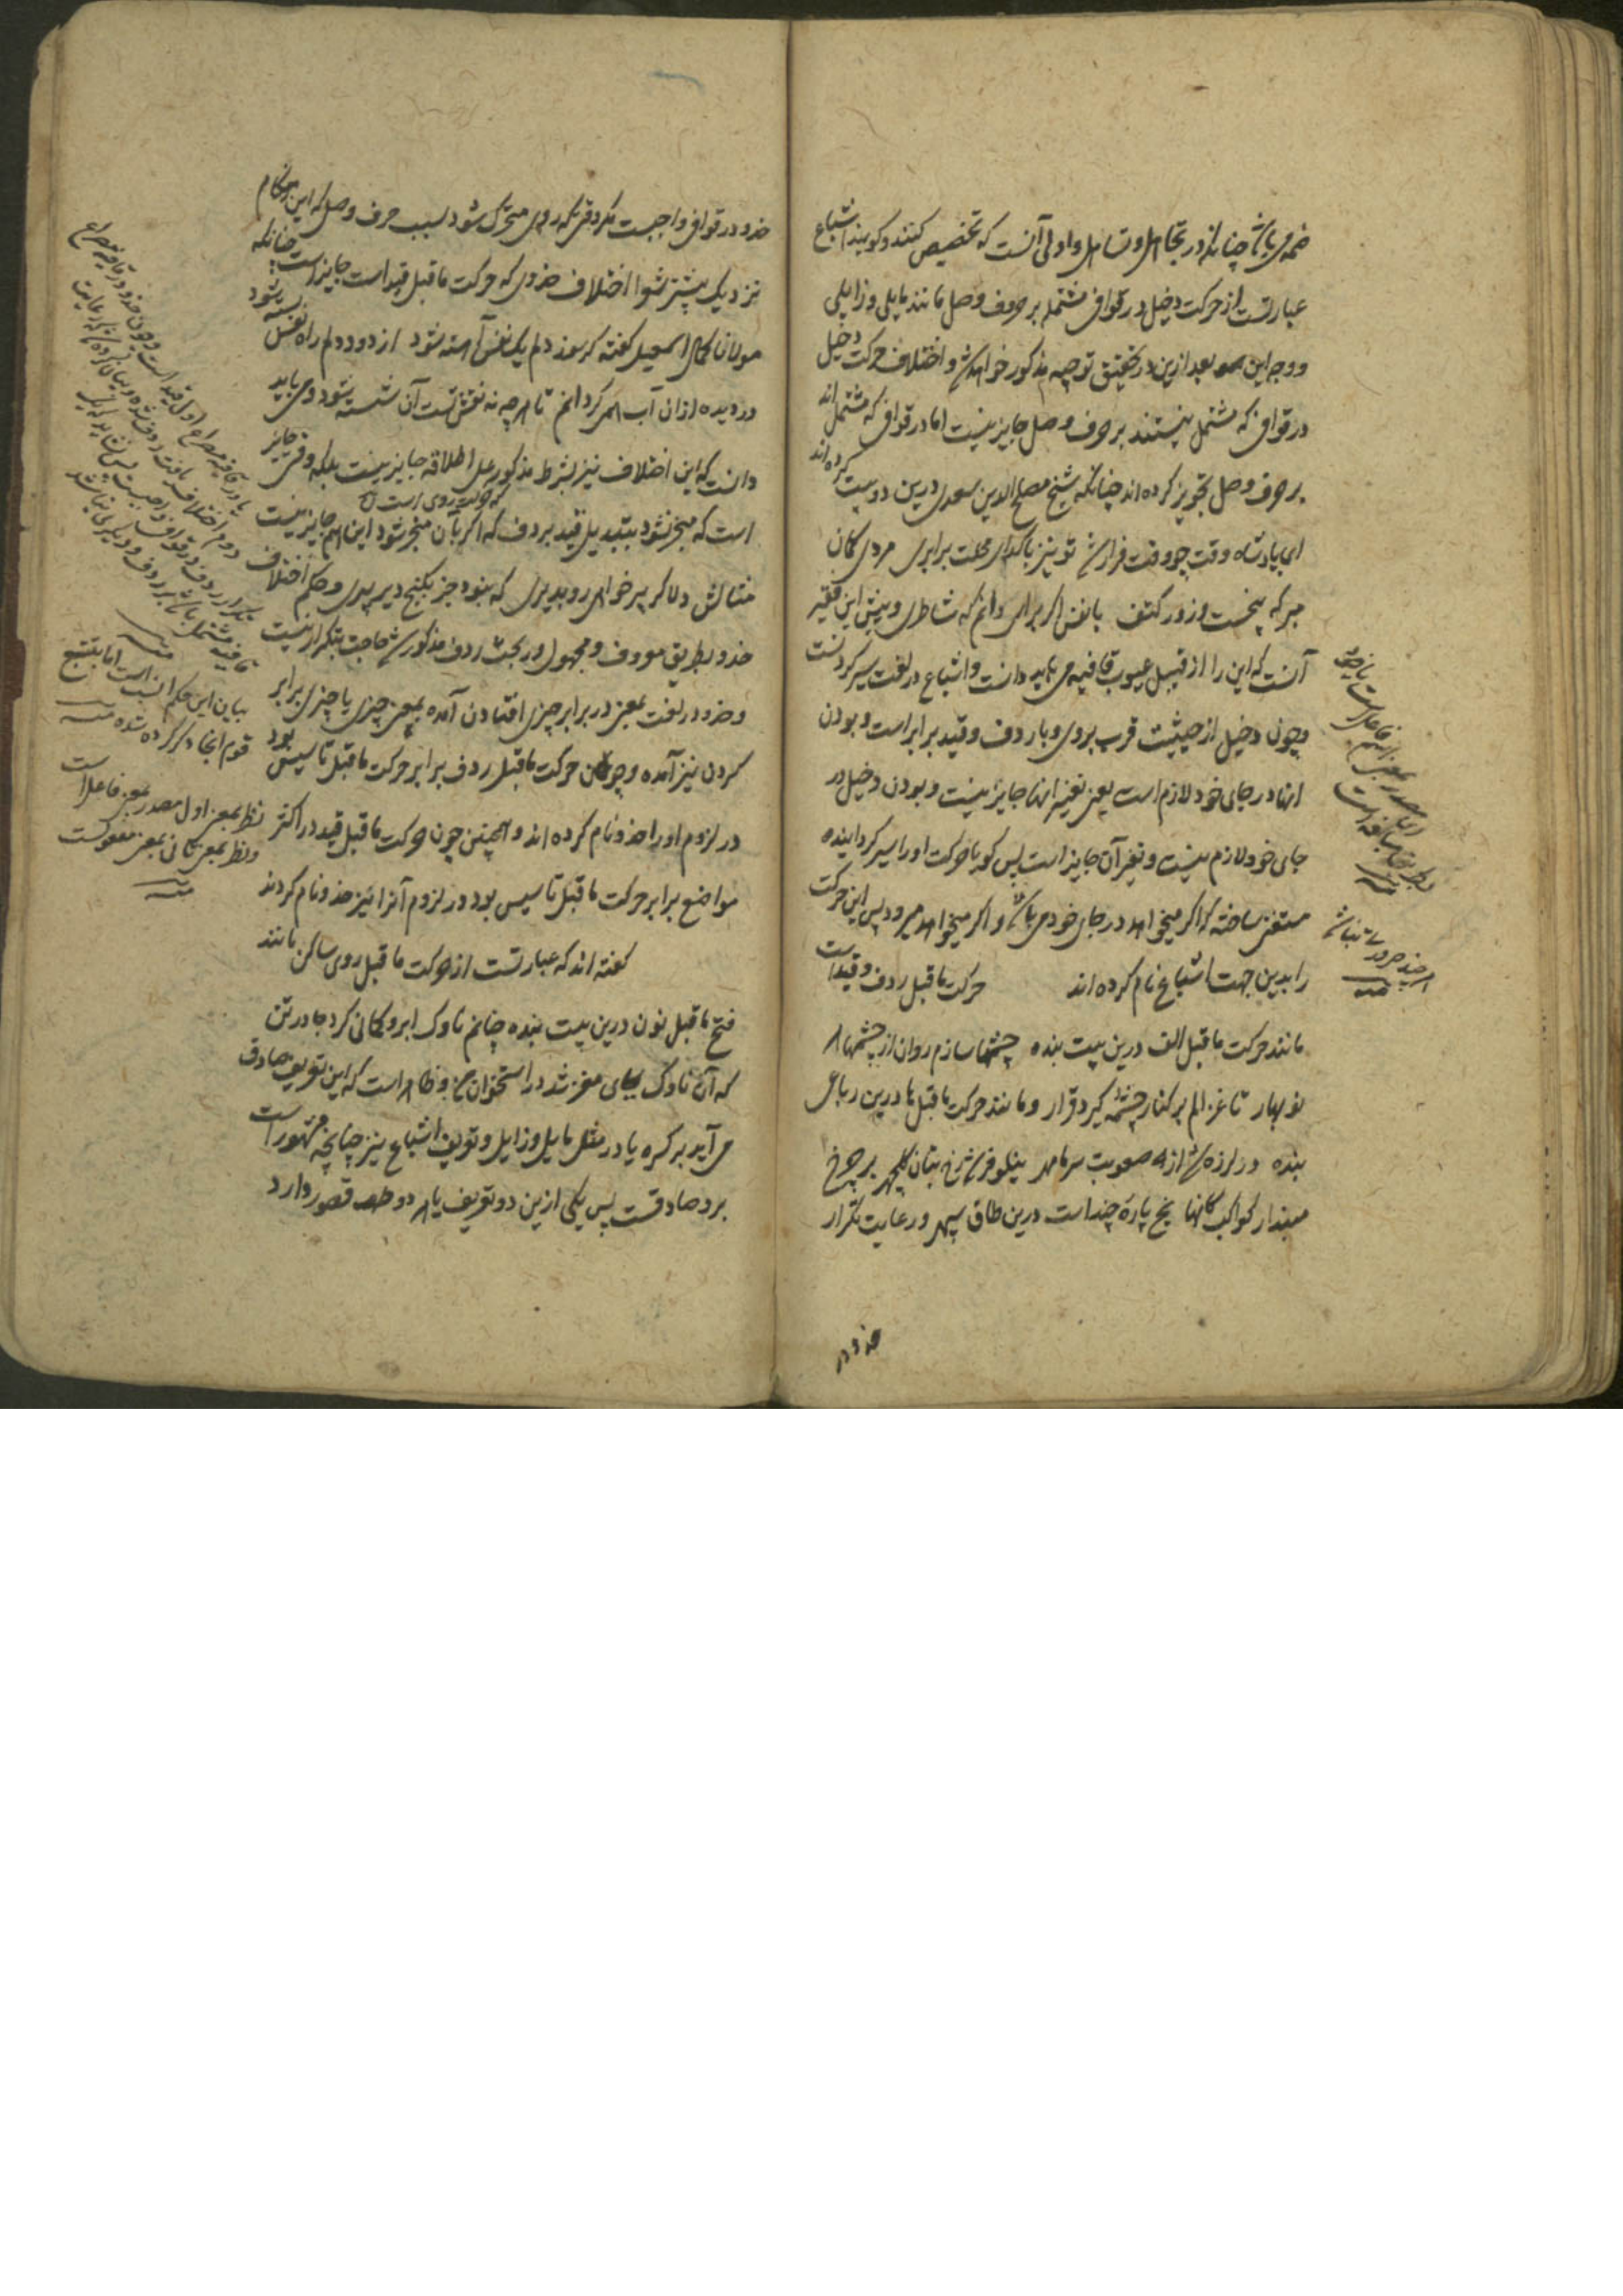 ضمه می باشد چنانکه در تجاهل و تساهل و اولی آنست که تخصیص کنند و گویند اشباع
عبارتست از حرکت دخیل در قوافی مشتمله بر حروف وصل مانند مایلی و زایلی
و وجه این بعد ازین در تحقیق توجیه مذکور خواهد شد و اختلاف حرکت دخیل
در قوافی که مشتمل نیستند بر حرف وصل جایز نیست اما در قوافی که مشتمل اند
بر حرف وصل تجویز کرده اند چنانکه شیخ مصلح الدین سعدی درین دو بیت کرده اند
ای پادشاه وقت چو وقتت فرا رسد تو نیز با گدای محلت برابری مردی گمان
مبر که به پنجست و زور کتف با نفس اگر برایی دانم که شاطری و پیش این فقیر
آنست که این را از قبیل عیوب قافیه می باید دانست و اشباع در لغت سیر کردنست
و چون دخیل از حیثیت قرب بروی و با ردف و قید برابر است و بودن
اینها در جای خود لازم است یعنی تغییر اینها جایز نیست و بودن دخیل در
جای خود لازم نیست و تغییر آن جایز است پس گویا حرکت او را سیر گردانیده
مستغنی ساخته که اگر میخواهد در جای خود می باشد و اگر میخواهد میرود پس این حرکت
را بدین جهت اشباع نام کرده اند حرکت ماقبل ردف و قید است
مانند حرکت ماقبل الف درین بیت بنده چشمها سازم روان از چشمها
نوبهار تا غزالم بر کنار چشمه گیرد قرار و مانند حرکت ماقبل ها درین رباعی
بنده در لرزه شد از صعوبت سرما مهر نیلوفری شد رخ بتان گلچهر بر چرخ
مپندار کواکب کانها یخ پاره چند است درین طاق سپهر و رعایت تکرار
حذو در
حذو در قوافی واجبست مگر وقتی که روی متحرک شود بسبب حرف وصل که این هنگام
نزدیک بیشتر شعرا اختلاف حذوی که حرکت ماقبل قید است جایز است چنانکه
مولانا کمال اسمعیل گفته گر سوز دلم یک نفس آهسته شود از دود دلم راه نفس بسته شود
در دیده از آن آب همی گردانم تا هر چه نه نقش تست آن شسته شود و می باید
دانست که این اختلاف نیز بشرط مذکور علی اطلاقه جایز نیست بلکه وقتی جایز
است که منجر نشود بتبدیل قید بردف که اگر بآن منجر شود این هم جایز نیست
که حرکت روی است
مثالش دلا گر پیر خواهی رو بدیری که نبود جز بکنج دیر پیری و حکم اختلاف
حذو بطریق معروف و مجهول در بحث ردف مذکور شد حاجت بتکرار نیست
و حذو در لغت بمعنی در برابر چیزی افتادن آمده بمعنی چیزی با چیزی برابر
کردن نیز آمده و چون حرکت ماقبل ردف برابر حرکت ماقبل تاسیس بود
در لزوم او را حذو نام کرده اند و همچنین چون حرکت ماقبل قید در اکثر
مواضع برابر حرکت ماقبل تاسیس بود در لزوم آنرا نیز حذو نام کردند
گفته اند که عبارتست از حرکت ماقبل روی ساکن مانند
فتح ماقبل نون درین بیت بنده چنانم ناوک ابرو کمانی کرد جا در تن
که آن ناوک بجای مغز شد در استخوان من و ظاهر است که این تعریف صادق
می آید بر کسره یا در مثل مایل و زایل و تعریف اشباع نیز چنانچه مشهور است
برو صادقست پس یکی ازین دو تعریف یا هر دو قصور دارد
بیان این حکم انسب است اما بتتبع
قوم اینجا ذکر کرده شده منه
نظر بمعنی اول مصدر بمعنی فاعل است
و نظر بمعنی ثانی بمعنی مفعولست
منه